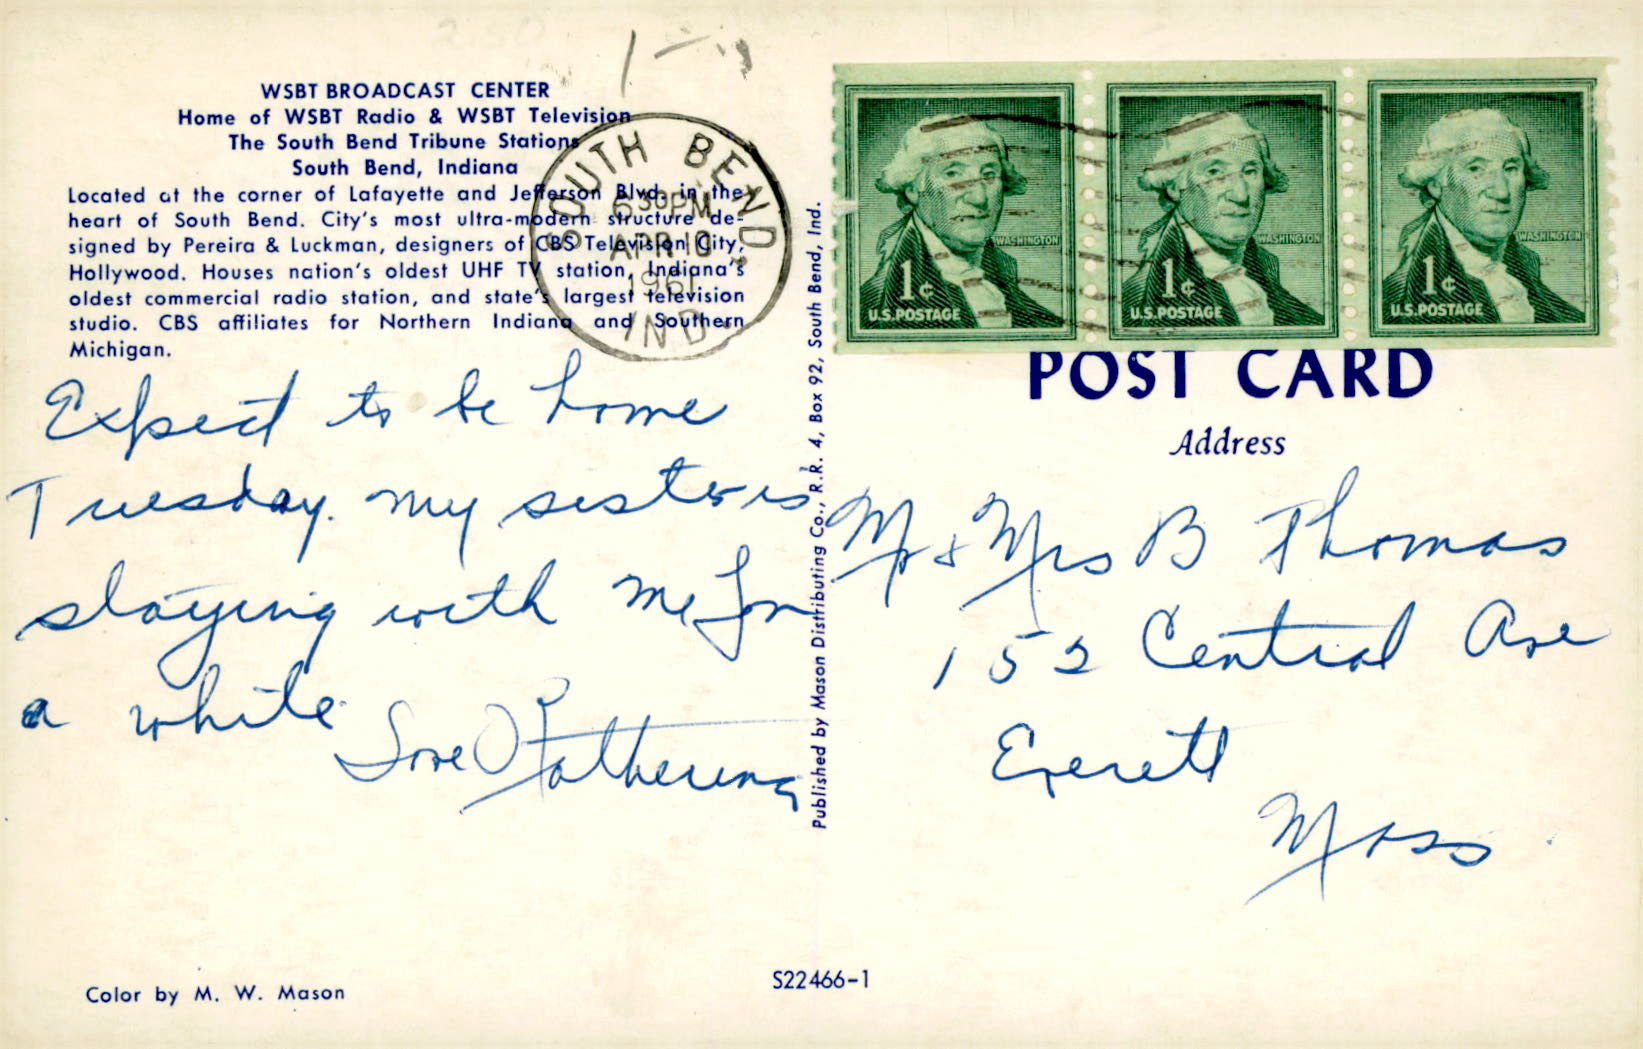 2.50
WSBT BROADCAST CENTER
Home of WSBT Radio & WSBT Television
The South Bend Tribune Stations
South Bend, Indiana
Located at the corner of Lafayette and Jefferson Blvd. in the
heart of South Bend. City's most ultra-modern structure de-
signed by Pereira & Luckman, designers of CBS Television City,
Hollywood. Houses nation's oldest UHF TV station, Indiana's
oldest commercial radio station, and state's largest television
studio. CBS affiliates for Northern Indiana and Southern
Michigan.
SOUTH BEND,
6 30 PM
APR 10
1961
IND.
Expect to be home
Tuesday. My sister is
staying with me for
a while.
Love
Color by M. W. Mason
Published by Mason Distributing Co., R.R. 4, Box 92, South Bend, Ind.
S22466-1
WASHINGTON
1¢
U.S. POSTAGE
WASHINGTON
1¢
U.S. POSTAGE
WASHINGTON
1¢
U.S. POSTAGE
POST CARD
Address
Mr & Mrs B Thomas
152 Central Ave
Everett
Mass